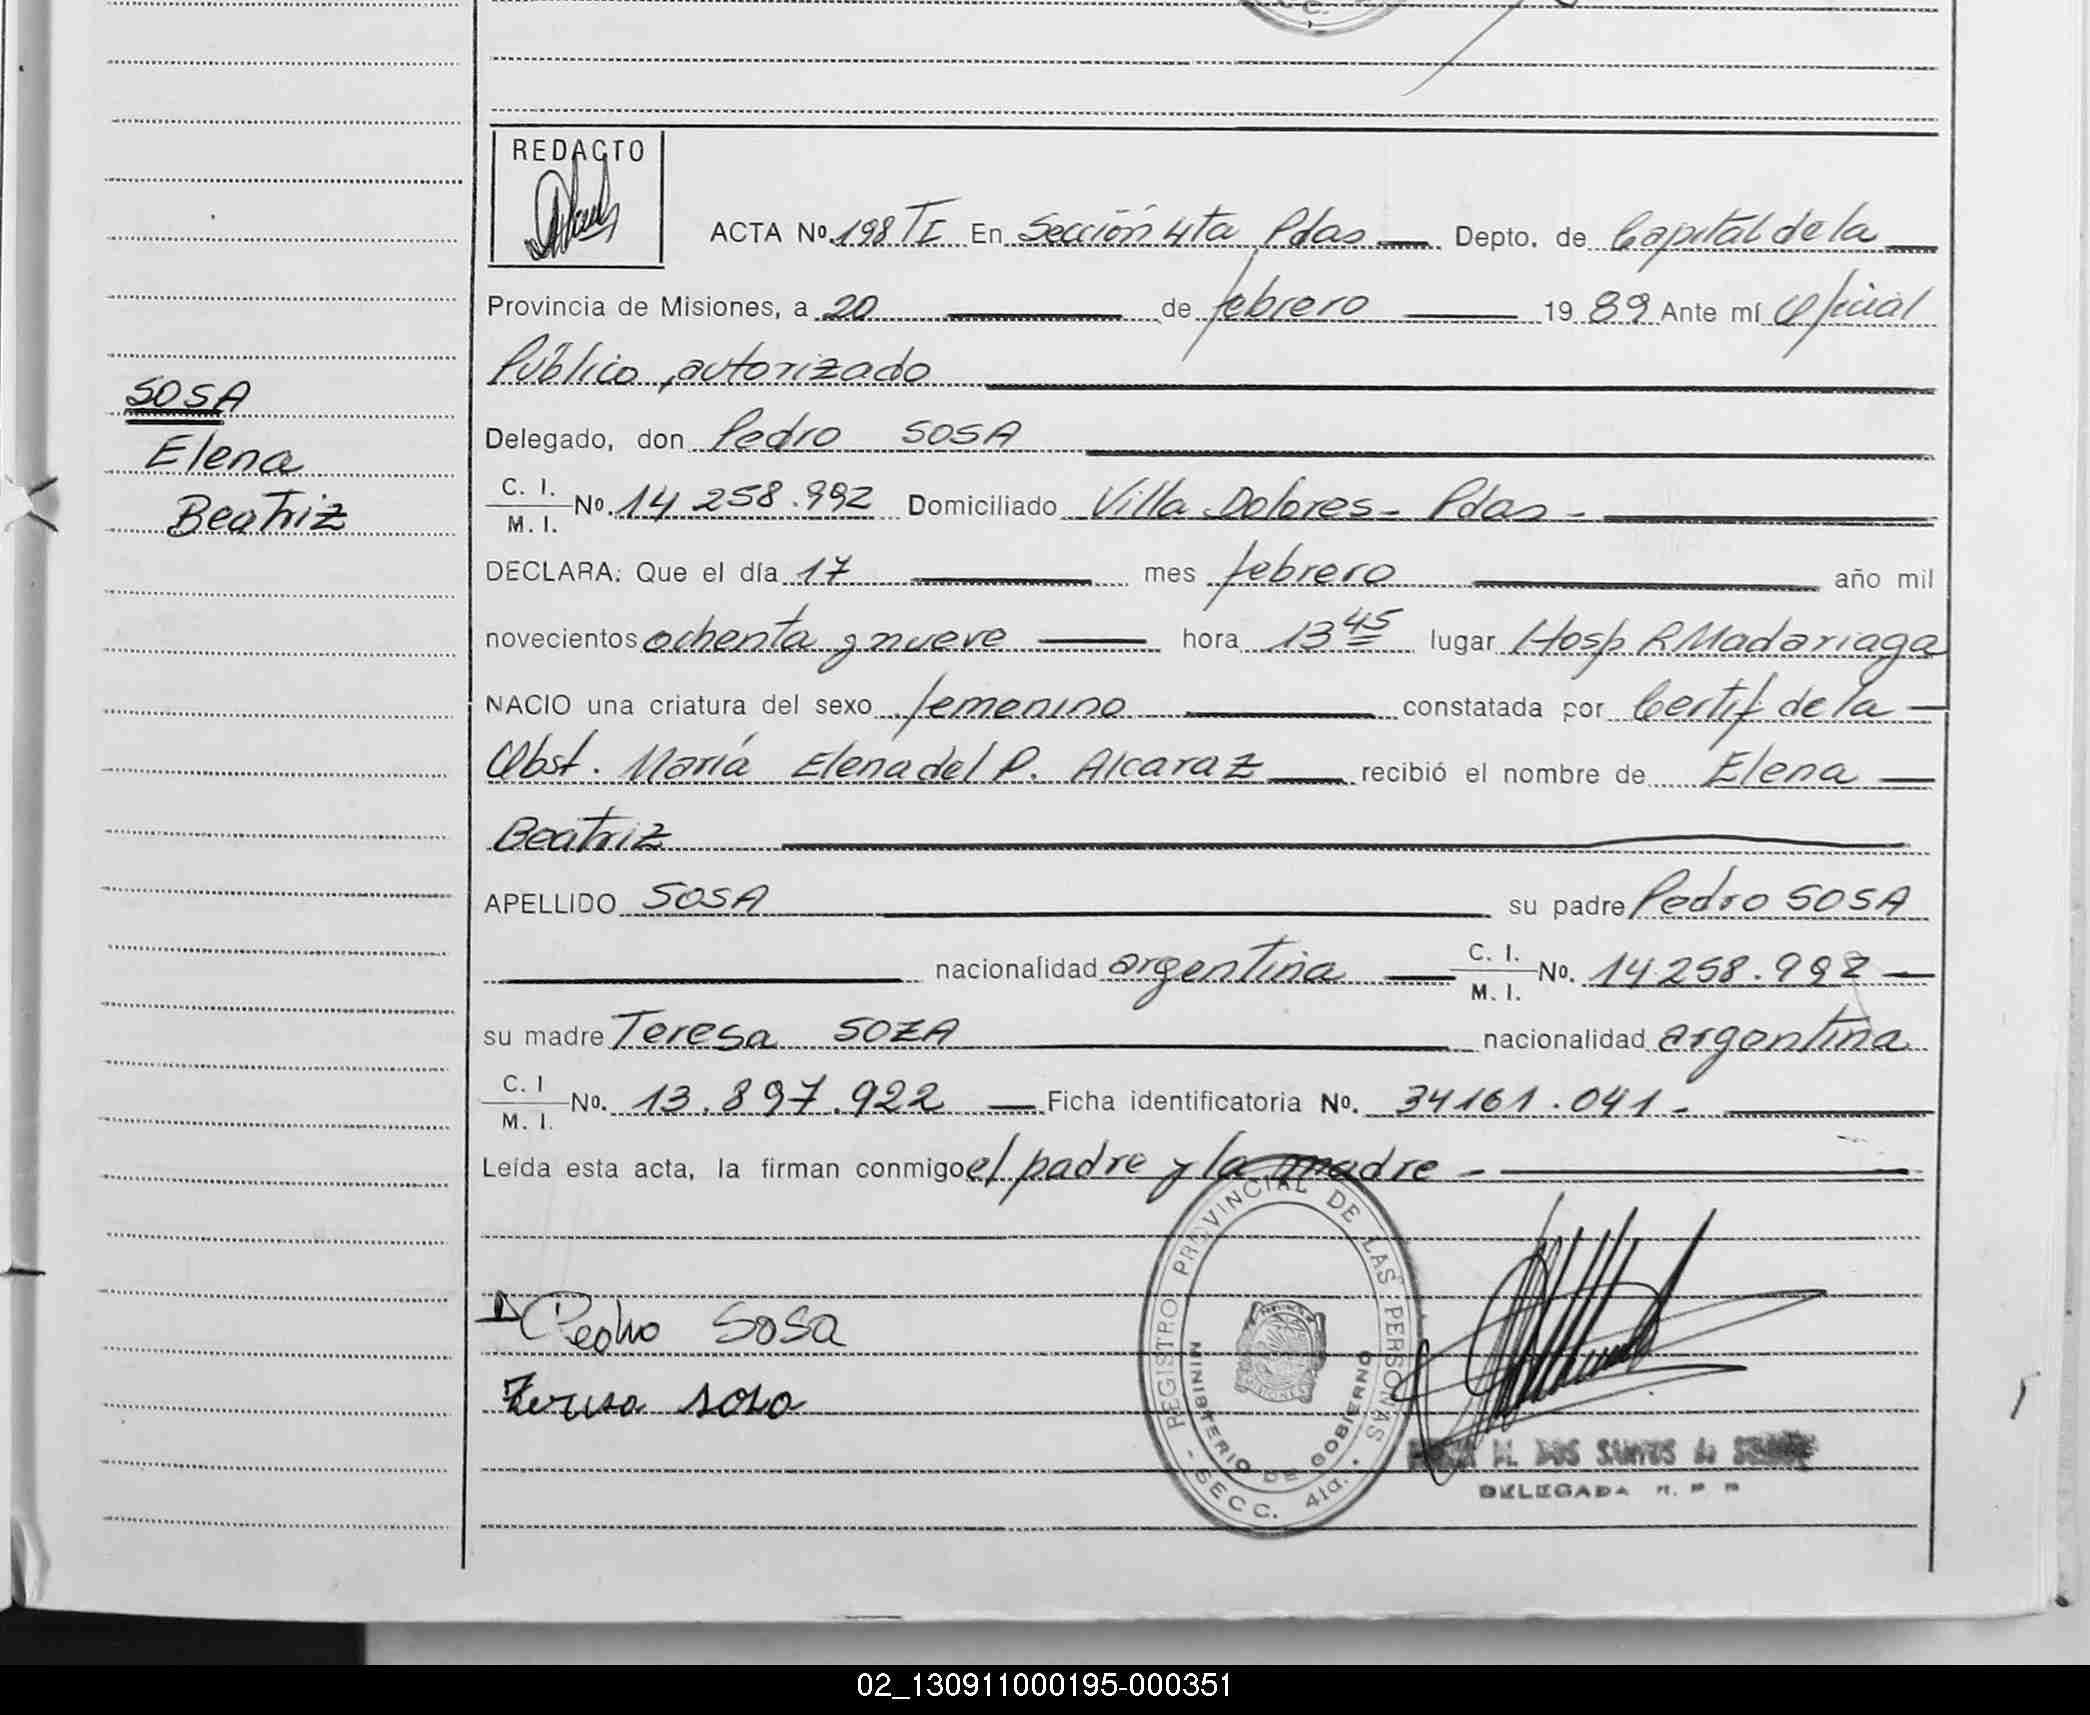 REDACTO
ACTA Nº 198 TI En Sección 4ta Pdas Depto. de Capital de la
Provincia de Misiones, a 20 de febrero 1989 Ante mí Oficial
Público, autorizado
SOSA
Delegado, don Pedro SOSA
Elena
C. I.
M. I. Nº. 14 258.992 Domiciliado Villa Dolores - Pdas -
Beatriz
DECLARA: Que el día 17 mes febrero año mil
novecientos ochenta y nueve hora 13 45 lugar Hosp R Madariaga
NACIO una criatura del sexo femenino constatada por Certif de la
Obst. María Elena del P. Alcaraz recibió el nombre de Elena
Beatriz
APELLIDO SOSA su padre Pedro SOSA
nacionalidad argentina C. I.
M. I. Nº. 14.258.992
su madre Teresa SOZA nacionalidad argentina
C. I
M. I. Nº. 13.897.922 Ficha identificatoria Nº. 34161.041 -
Leída esta acta, la firman conmigo el padre y la madre -
REGISTRO PROVINCIAL DE LAS PERSONAS
MINISTERIO DE GOBIERNO
- SECC. 4ta. -
Pedro Sosa
Teresa sosa
M. DOS SANTOS de
DELEGADA
02_130911000195-000351